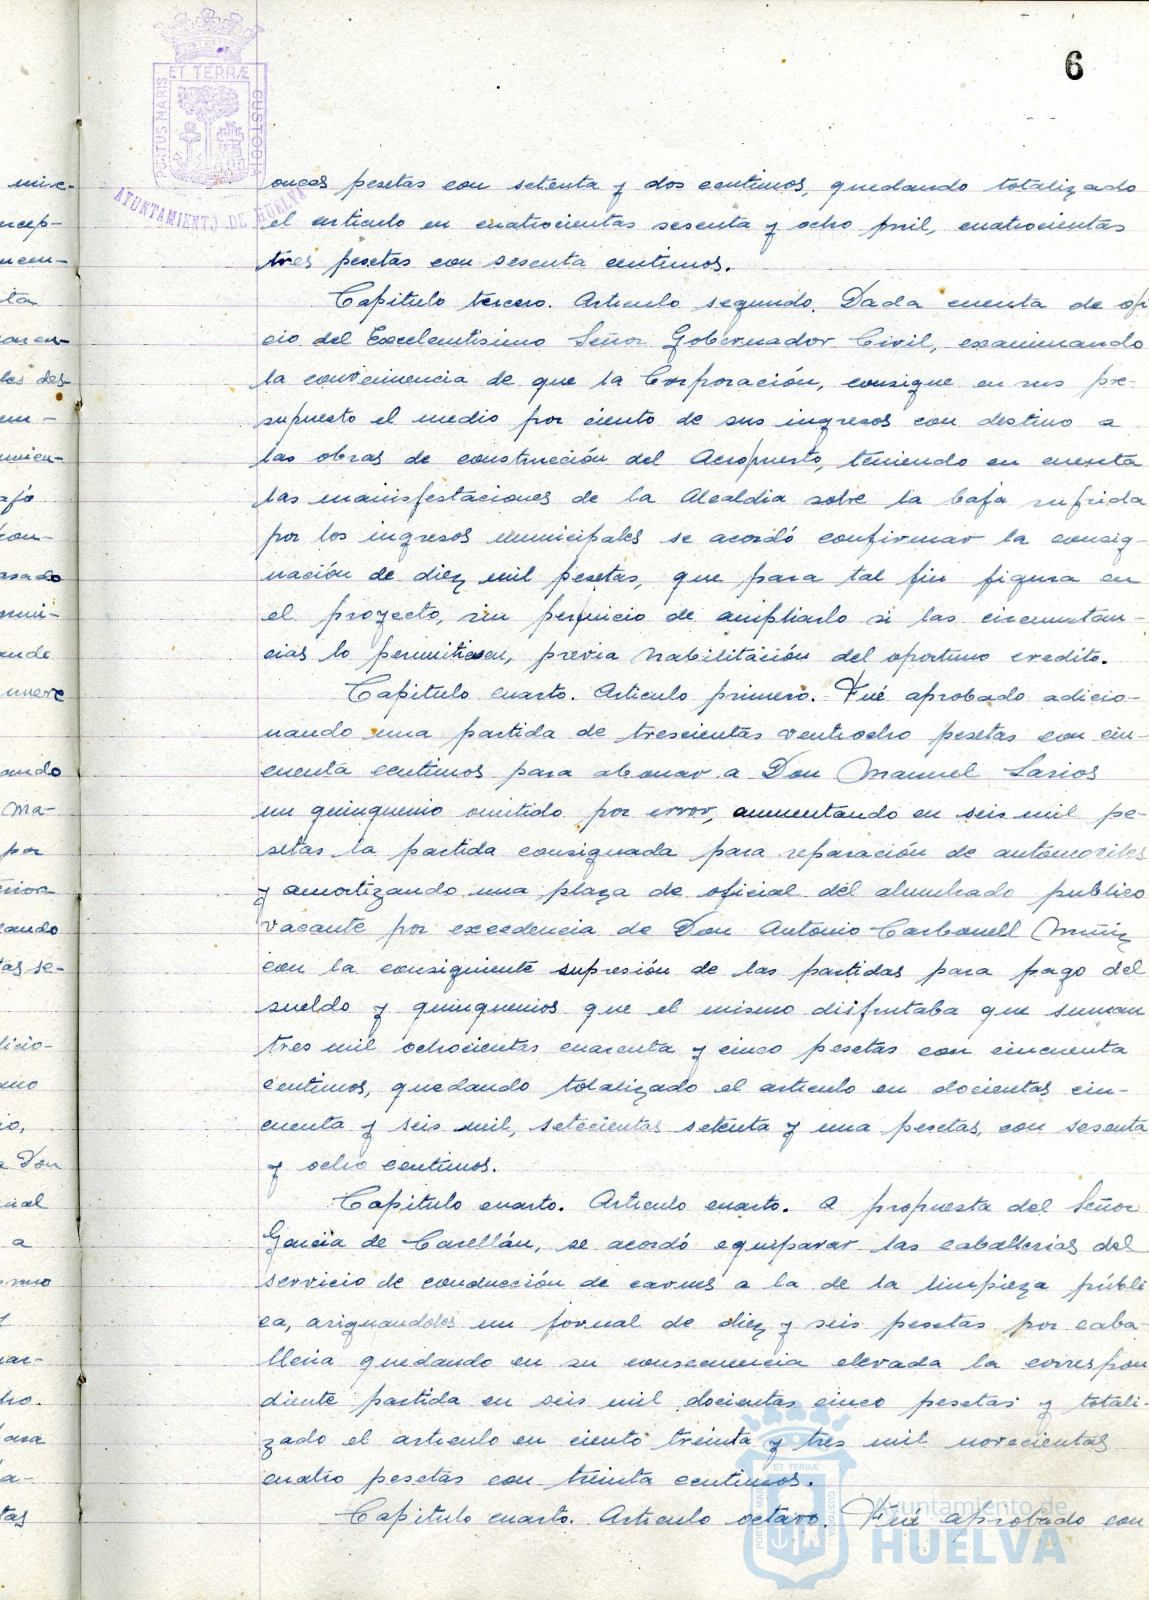 6
ET TERRÆ
PORTUS MARIS
CUSTODIA
AYUNTAMIENTO DE HUELVA
onces pesetas con setenta y dos centimos, quedando totalizado
el articulo en cuatrocientas sesenta y ocho mil, cuatrocientas
tres pesetas con sesenta centimos.
Capitulo tercero. Articulo segundo. Dada cuenta de ofi
cio del Excelentisimo Señor Gobernador Civil, examinando
la conveniencia de que la Corporación, consigne en sus pre-
supuesto el medio por ciento de sus ingresos con destino a
las obras de construcción del Aeropuerto, teniendo en cuenta
las manisfestaciones de la Alcaldia sobre la baja sufrida
por los ingresos municipales se acordó confirmar la consig-
nación de diez mil pesetas, que para tal fin figura en
el proyecto, sin perjuicio de ampliarlo si las circunstan-
cias lo permitiesen, previa habilitación del oportuno credito.
Capitulo cuarto. Articulo primero. Fué aprobado adicio-
nando una partida de trescientas ventiocho pesetas con cin-
cuenta centimos para abonar a Don Manuel Larios
un quinquenio omitido por error, aumentando en seis mil pe-
setas la partida consignada para reparación de automoviles
y amortizando una plaza de oficial del alumbrado publico
vacante por excedencia de Don Antonio Carbonell Muñiz
con la consiguiente supresión de las partidas para pago del
sueldo y quinquenios que el mismo disfrutaba que suman
tres mil ochocientas cuarenta y cinco pesetas con cincuenta
centimos, quedando totalizado el articulo en docientas cin-
cuenta y seis mil, setecientas setenta y una pesetas, con sesenta
y ocho centimos.
Capitulo cuarto. Articulo cuarto. A propuesta del Señor
Garcia de Casellán, se acordó equiparar las caballerias del
servicio de conducción de carnes a la de la limpieza públi
ca, asignandoles un jornal de diez y seis pesetas por caba-
lleria quedando en su consecuencia elevada la correspon
diente partida en seis mil docientas cinco pesetas y totali-
zado el articulo en ciento treinta y tres mil novecientas
cuatro pesetas con treinta centimos.
Capitulo cuarto. Articulo octavo. Fué aprobado con
Ayuntamiento de
HUELVA